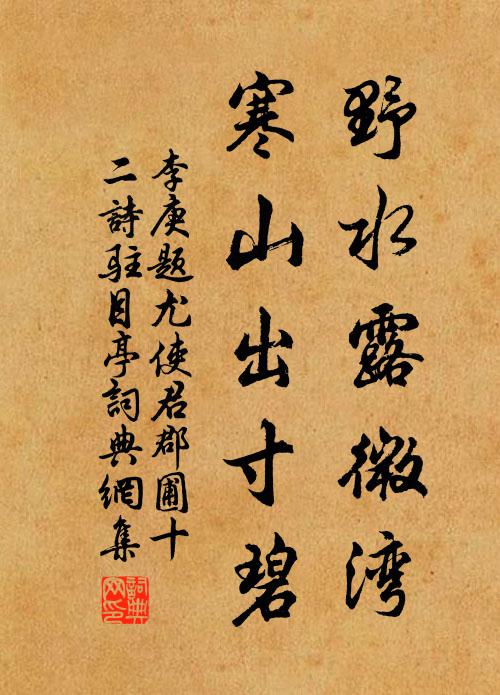 野水露微湾
寒山出寸碧
李庚题尤使君郡圃十
二詩駐目亭詞典網集
詞典
网印